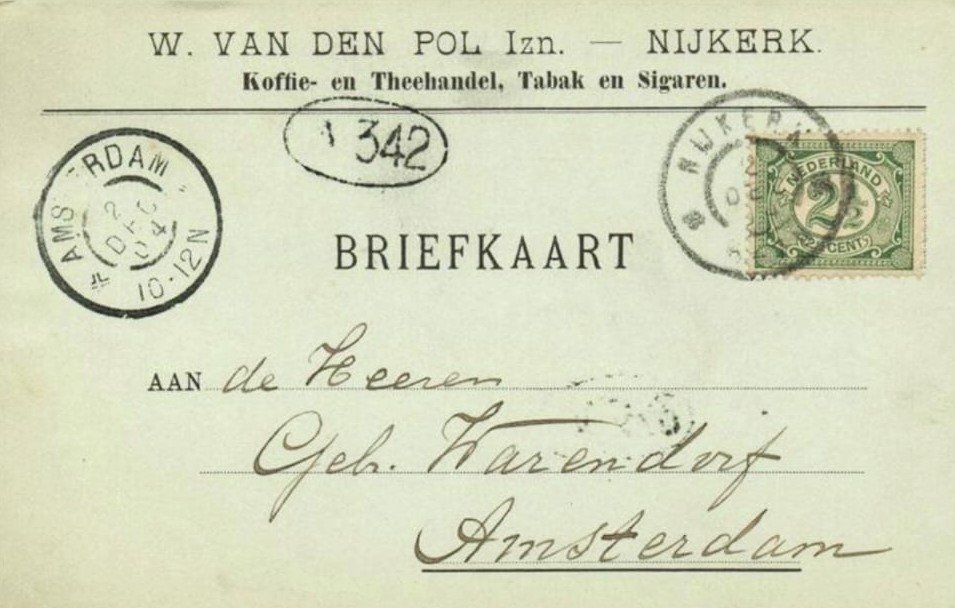 W. VAN DEN POL Izn. — NIJKERK.
Koffie- en Theehandel, Tabak en Sigaren.
342
AMSTERDAM
2
DEC
04
10-12N
NIJKERK
2
NEDERLAND
2½
CENT
BRIEFKAART
AAN de Heeren
Gebr. Warendorf
Amsterdam